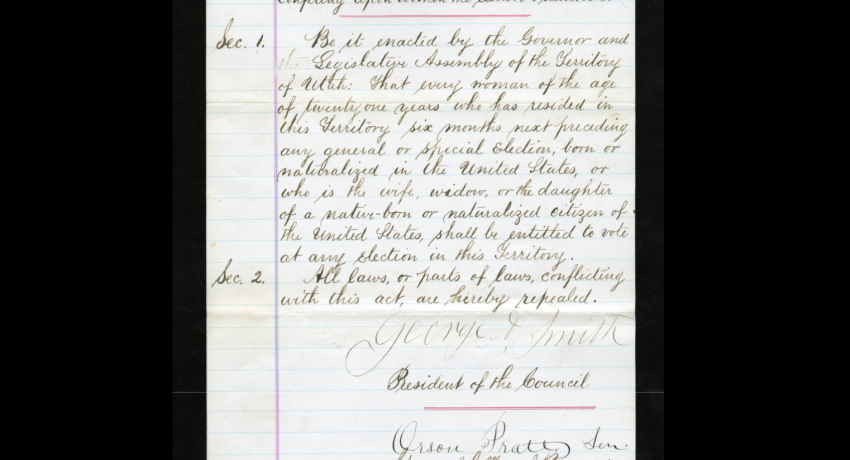 conferring upon women the
Sec. 1. Be it enacted by the Governor and
the Legislative Assembly of the Territory
of Utah: That every woman of the age
of twenty one years who has resided in
this Territory six months next preceding
any general or special Election, born or
naturalized in the United States, or
who is the wife, widow, or the daughter
of a native-born or naturalized citizen of
the United States, shall be entitled to vote
at any Election in this Territory.
Sec. 2. All laws, or parts of laws, conflicting
with this act, are hereby repealed.
George A Smith
President of the Council
Orson Pratt Sen.